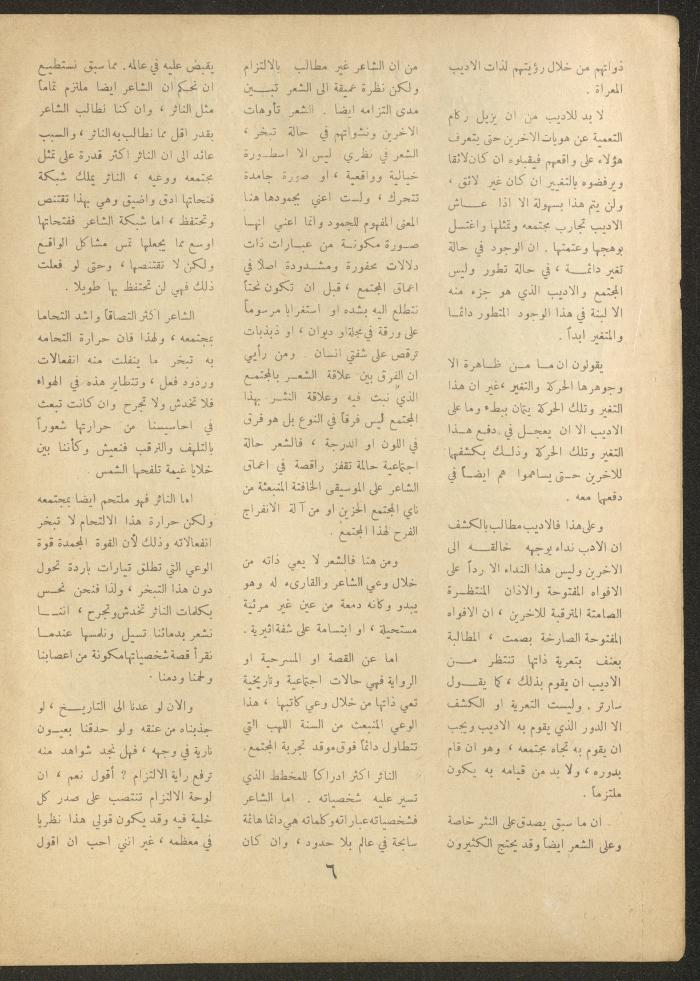 ذواتهم من خلال رؤيتهم لذات الاديب
المعراة .
لا بد للاديب من ان يزيل ركام
التعمية عن هويات الاخرين حتى يتعرف
هؤلاء على واقعهم فيقبلوه ان كان لائقا
ويرفضوه بالتغيير ان كان غير لائق ،
ولن يتم هذا بسهولة الا اذا عــاش
الاديب تجارب مجتمعه وتمثلها واغتسل
بوهجها وعتمتها . ان الوجود في حالة
تغير دائمــة ، في حالة تطور وليس
المجتمع والاديب الذي هو جزء منه
الا لبنة في هذا الوجود المتطور دائمــا
والمتغير ابداً .
يقولون ان مــا مــن ظــاهرة الا
وجوهرها الحركة والتغير ، غير ان هذا
التغير وتلك الحركة يتمان ببطء وما على
الاديب الا ان يعجــل في دفع هــذا
التغير وتلك الحركة وذلــك بكشفهما
للآخرين حــتى يساهموا هم ايضــاً في
دفعهما معه .
وعلى هذا فالاديب مطالب بالكشف
ان الادب نداء يوجهه خالقــه الى
الاخرين وليس هذا النداء الا رداً على
الافواه المفتوحة والاذان المنتظــرة
الصامتة المترقبة للاخرين ، ان الافواه
المفتوحة الصارخة بصمت ، المطالبة
بعنف بتعرية ذاتها تنتظر مــن
الاديب ان يقوم بذلك ، كما يقــول
سارتر . وليست التعرية او الكشف
الا الدور الذي يقوم به الاديب ويجب
ان يقوم به تجاه مجتمعه ، وهو ان قام
بدوره ، ولا بد من قيامه به يكون
ملتزماً .
ان ما سبق يصدق على النثر خاصة
وعلى الشعر ايضاً وقد يحتج الكثيرون
من ان الشاعر غير مطالب بالالتزام
ولكن نظرة عميقة الى الشعر تبــين
مدى التزامه ايضا . الشعر تأوهات
الاخرين ونشواتهم في حالة تبخر ،
الشعر في نظري ليس الا اسطــورة
خيالية وواقعية ، او صورة جامدة
تتحرك ، ولست اعني بجمودها هنا
المعنى المفهوم للجمود وانما اعني انهــا
صــورة مكونــة من عبــارات ذات
دلالات محفورة ومشــدودة اصلاً في
اعماق المجتمع ، قبل ان تكون نحتاً
نتطلع اليه بشده او استغرابا مرسوماً
على ورقة في مجلة او ديوان ، او ذبذبات
ترقص على شفتي انسان . ومن رأيي
ان الفرق بين علاقة الشعــر بالمجتمــع
الذي نبت فيه وعلاقة النثــر بهذا
المجتمع ليس فرقاً في النوع بل هو فرق
في اللون او الدرجة ، فالشعر حالة
اجتماعية حالمة تقفز راقصة في اعماق
الشاعر على الموسيقى الخافتة المنبعثة من
ناي المجتمع الحزين او من آلة الانفراج
الفرح لهذا المجتمع .
ومن هنا فالشعر لا يعي ذاته من
خلال وعي الشاعر والقارىء له وهو
يبدو وكانه دمعة من عين غير مرئية
مستحيلة ، او ابتسامة على شفة اثيرية .
اما عن القصة او المسرحية او
الرواية فهي حالات اجتماعية وتاريخية
تعي ذاتها من خلال وعي كاتبها ، هذا
الوعي المنبعث من السنة اللهب التي
تتطاول دائماً فوق موقد تجربة المجتمع .
الناثر اكثر ادراكاً للمخطط الذي
تسير عليه شخصياته . اما الشاعر
فشخصياته عباراته وكلماته هي دائما هائمة
سابحة في عالم بلا حدود ، وان كان
يقبض عليه في عالمه . مما سبق نستطيــع
ان نحكم ان الشاعر ايضا ملتزم تماماً
مثل الناثر ، وان كنا نطالب الشاعر
بقدر اقل مما نطالب به الناثر ، والسبب
عائد الى ان الناثر اكثر قدرة على تمثل
مجتمعه ووعيه ، الناثر يملك شبكة
فتحاتها ادق واضيق وهي بهذا تقتنص
وتحتفظ ، اما شبكة الشاعر ففتحاتها
اوسع مما يجعلها تمس مشاكل الواقــع
ولكن لا تقتنصها ، وحتى لو فعلت
ذلك فهي لن تحتفظ بها طويلا .
الشاعر اكثر التصاقاً واشد التحاما
بمجتمعه ، ولهذا فان حرارة التحامه
به تبخر ما ينفلت منه انفعالات
وردود فعل ، وتتطاير هذه في الهواء
فلا تخدش ولا تجرح وان كانت تبعث
في احاسيسنا من حرارتها شعوراً
بالتلهف والترقب فنعيش وكأننا بين
خلايا غيمة تلفحها الشمس .
اما الناثر فهو ملتحم ايضا بمجتمعه
ولكن حرارة هذا الالتحام لا تبخر
انفعالاته وذلك لأن القوة المجمدة قوة
الوعي التي تطلق تيارات باردة تحول
دون هذا التبخر ، ولذا فنحن نحــس
بكلمات الناثر تخدش وتجرح ، اننــا
نشعر بدمائنا تسيل ونلمسها عندمــا
نقرأ قصة شخصياتها مكونة من اعصابنا
ولحمنا ودمنا .
والآن لو عدنا الى التاريــخ ، لو
جذبناه من عنقه ولو حدقنا بعيــون
نارية في وجهه ، فهل نجد شواهد منه
ترفع راية الالتزام ؟ أقول نعم ، ان
لوحة الالتزام تنتصب على صدر كل
خلية فيه وقد يكون قولي هذا نظريا
في معظمه ، غير انني احب ان اقول
٦